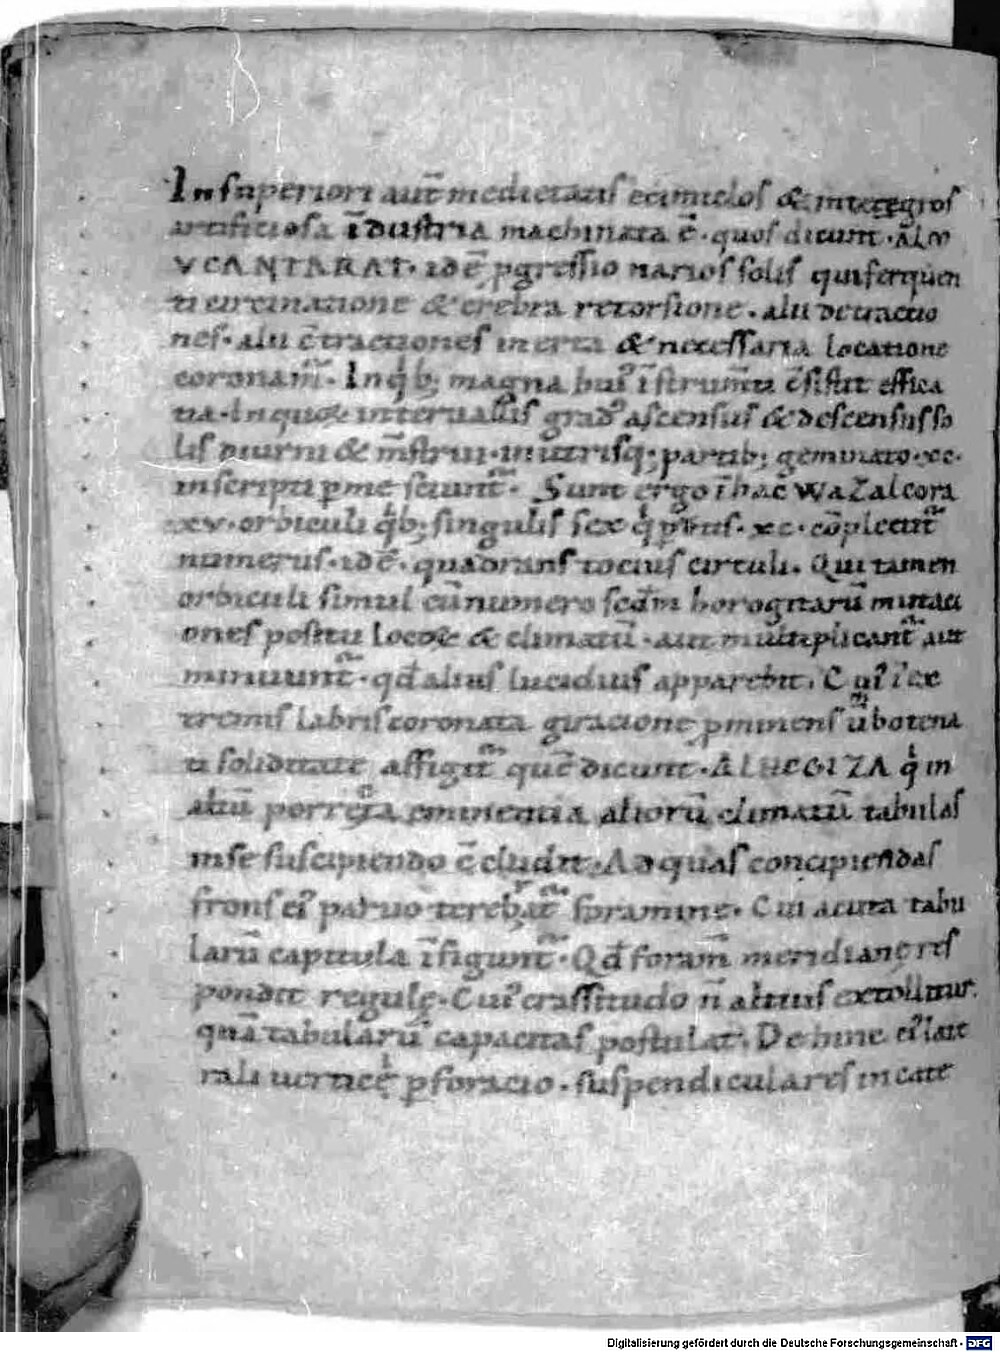 In superiori aut̄ medietatis ęcimiclos & integros
artificiosa īdustria machinata ē· quos dicunt ·ALM
VCANTARAT· idē p̱gressio narios solis qui ferquen
ti circinatione & crebra retorsione· alii detractio
nes· alii c̄tractiones in erta & necessaria locatione
coronam̄· In qⁱb; magna hui' īstrum̄ti c̄sistit effica
tia· In quoꝝ interuallis grad' ascensus & descensus so
lis diurni & m̄strui· in utrisq; partib; geminato ·xc·
inscripti ꝑme sciunt̄· Sunt ergo ī hac̄ Wazalcora
xv· orbiculi qⁱb; singulis sex ·xc· cōplectit̄
numerus· idē· quadrans tocius circuli· Qui tamen
orbiculi simul cū numero scdm̄ horog̱tarū mutaci
ones positu locoꝝ & climatū· aut multiplicant̄ aut
minuunt̄· qd̄ alius lucidius apparebit· Cui' ī ex
tremis labris coronata giracione p̱minens
ti soliditate affigit̄ quē dicunt· ALHCGIZA qⁱ in
altū porrecta eminentia aliorū climatū tabulas
in se suscipiendo c̄cludit· Ad quas concipiendas
frons ei' paruo terebrat̄ foramine· Cui acuta tabu
larū capitula īfigunt̄· Qd̄ foram̄ meridianę res
pondit regulę· Cui' crassitudo n̄ altius extollitur·
quā tabularū capacitas postulat· Dehinc ei' late
rali uertice ꝑforacio· suspendiculares in cate